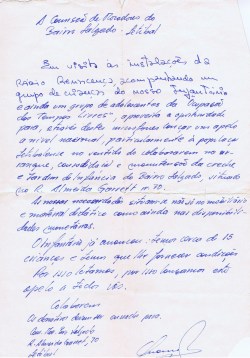 A Comissão de Moradores do
Bairro Salgado - Setúbal
Em visita às instalações da
Rádio Renascença, acompanhando um
grupo de crianças do nosso Infantário
e ainda um grupo de adolescentes da Ocupação
dos Tempos Livres, aproveita a oportunidade
para, através destes microfones lançar um apelo
a nível nacional, particularmente à população
Setubalense no sentido de colaborarem no
e manutenção da creche
e Jardim de Infância do Bairro Salgado, situado
na R. Almeida Garrett nº 70.
As nossas necessidades situam-se não só no mobiliário
e material didático como ainda nas disponibili-
dades monetárias.
O Infantário já arrancou: temos cerca de 15
crianças e temos que lhe fornecer condições
Por isso lutamos, por isso lançamos este
apelo a todos vós.
Colaborem
Os donativos devem ser enviados para:
R. Almeida Garrett, 70
Setúbal